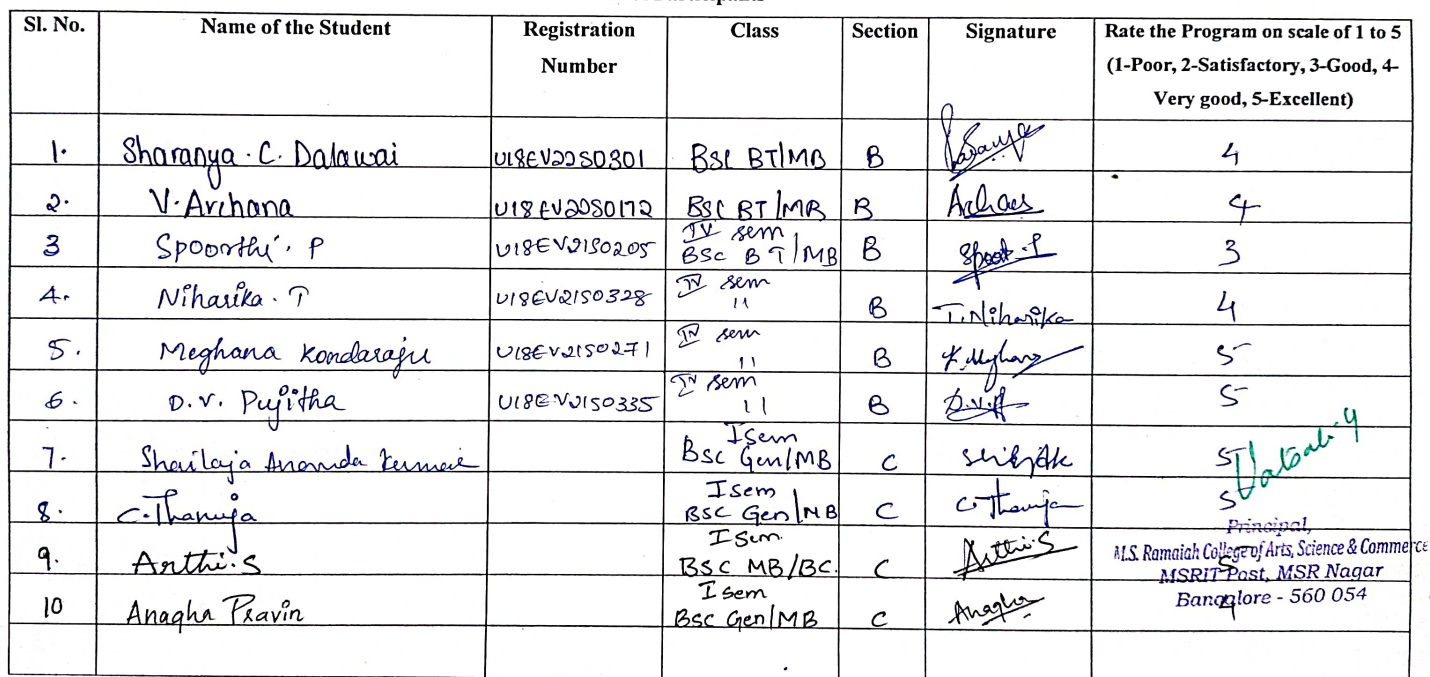 Sl. No. Name of the Student Registration Number Class Section Signature Rate the Program on scale of 1 to 5 (1-Poor, 2-Satisfactory, 3-Good, 4-Very good, 5-Excellent)
1. Sharanya . C. Dalawai U18EV22S0301 BSc BT/MB B 4
2. V. Archana U18EV22S0172 BSC BT/MB B 4
3 Spoorthi . P U18EV21S0205 IV sem BSc BT/MB B Spoort.P 3
4. Niharika . T U18EV21S0328 IV sem 11 B T. Niharika 4
5. Meghana Kondaraju U18EV21S0271 IV sem 11 B 5
6. D.V. Pujitha U18EV21S0335 IV sem 11 B 5
7. Shailaja Ananda I sem BSC Gen/MB C 5
8. C. Thanuja I sem BSC Gen/MB C C. Thanuja 5
Principal,
9. Arthi.S I Sem BSC MB/BC. C Arthi.S 5
M.S. Ramaiah College of Arts, Science & Commerce
MSRIT Post, MSR Nagar
10 Anagha Pravin I sem BSC Gen/MB C Anagha 4
Bangalore - 560 054